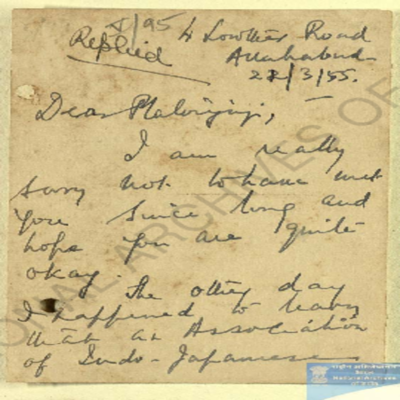 I/95
Replied
4 Lowther Road
Allahabad
22/3/55.
Dear Malaviyaji,
I am really
sorry not to have met
you since long and
hope you are quite
okay.
The other day
I happened to learn
that an Association
of Indo-Japanese